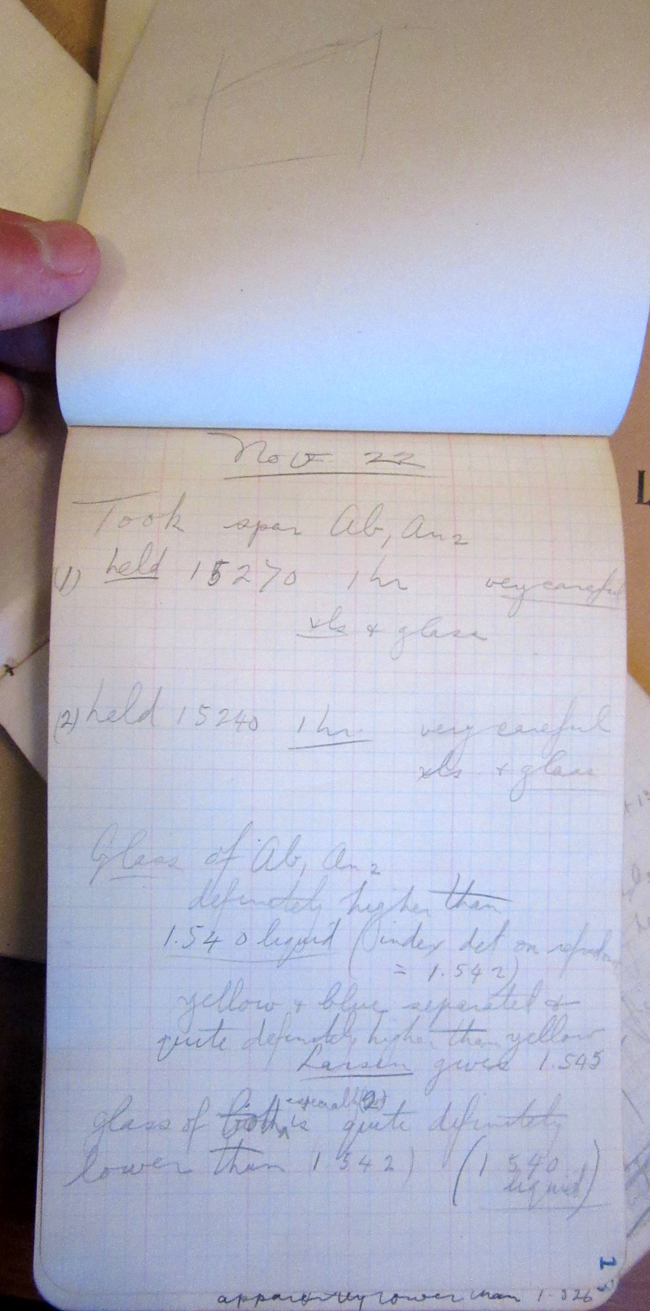 Nov 22
Took spar Ab, An2
(1) held 15270 1 hr very careful
xls + glass
(2) held 15240 1 hr very careful
xls + glass
Glass of Ab, An2
definitely higher than
1.540 liquid (index det on
= 1.542)
yellow + blue separated &
quite definitely higher than yellow
Larsen gives 1.545
especially (2)
glass of both is quite definitely
lower than 1.542) (1.540
liquid)
13
apparently lower than 1.526
L